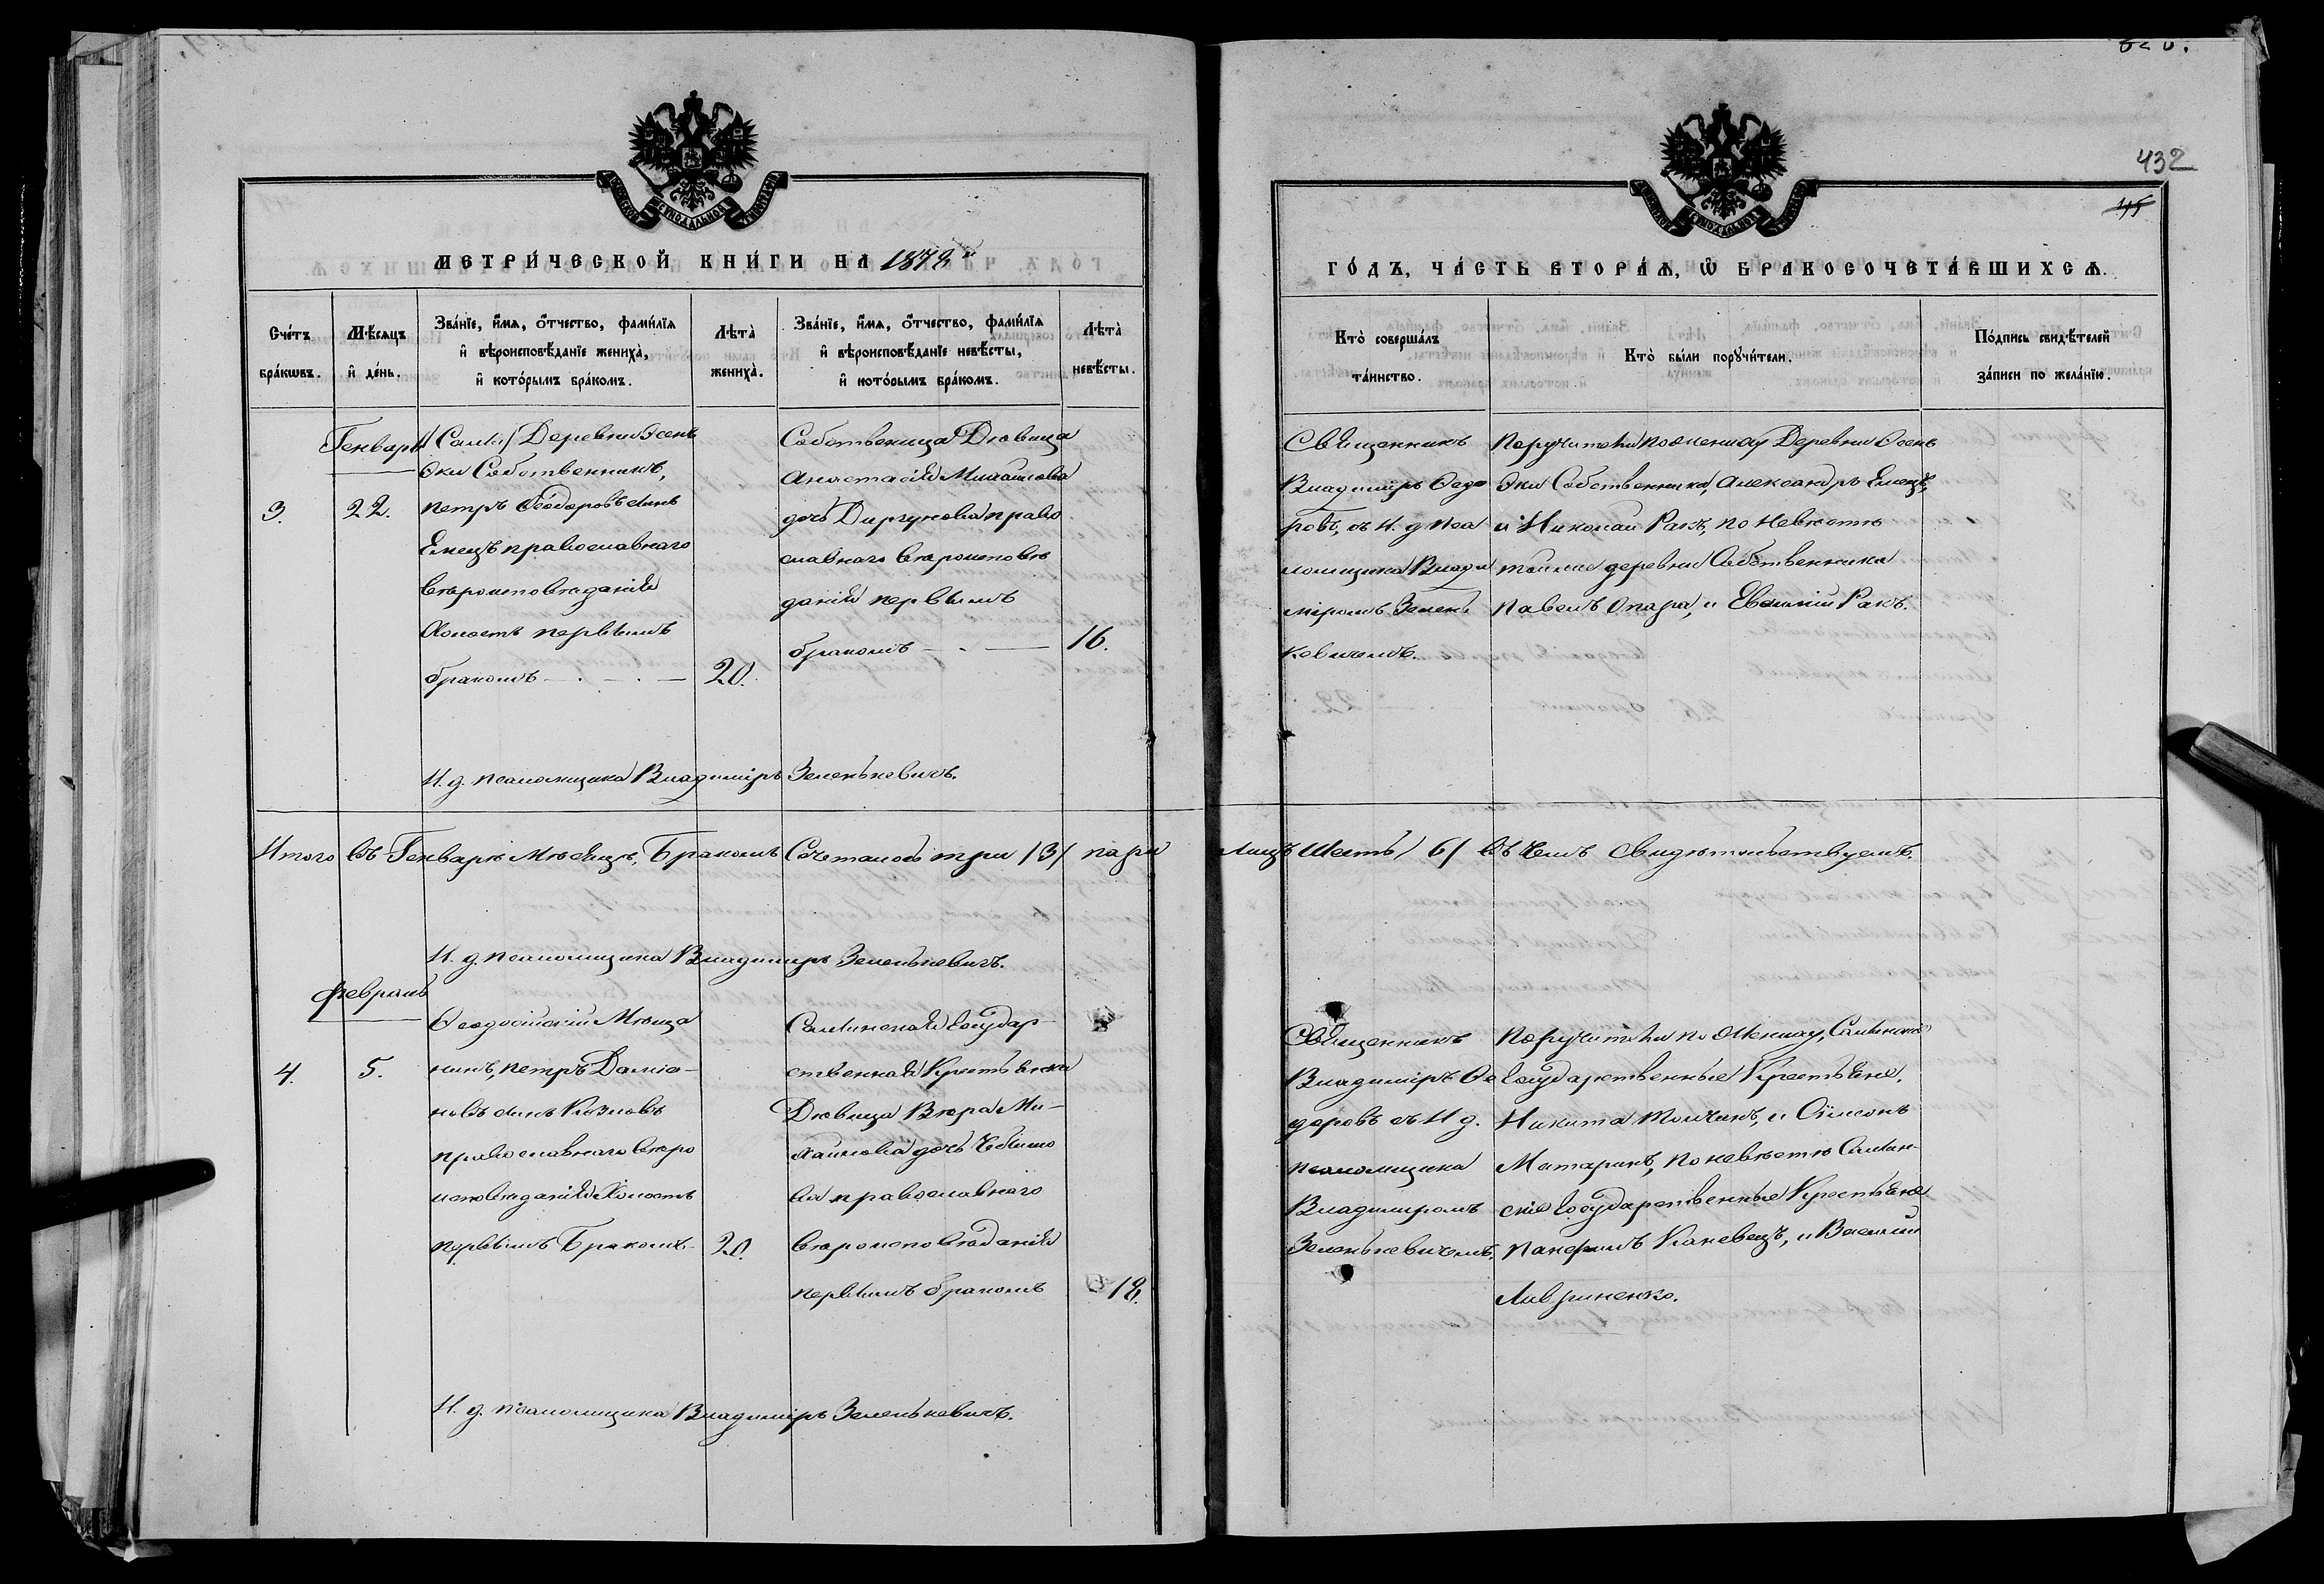 432
45
МЕТРИ́ЧЕСКОЙ КНИ́ГИ НА 1878й
ГО́ДЪ, ЧА́СТЬ ВТОРА́Ѧ, Ѽ БРАКОСОЧЕТА́ВШИХСѦ.
Сче́тъ бра́кѡвъ.
Мѣ́сѧцъ и҆ де́нь.
Зва́нїе, и҆́мѧ, ѻ҆́тчество, фами́лїѧ
и҆ вѣроисповѣ́данїе жениха̀,
и҆ кото́рымъ бра́комъ.
Лѣ́та̀ жениха̀.
Зва́нїе, и҆́мѧ, ѻ҆́тчество, фами́лїѧ
и҆ вѣроисповѣ́данїе невѣ́сты,
и҆ кото́рымъ бра́комъ.
Лѣ́та̀ невѣ́сты.
Кто̀ соверша́лъ та́инство.
Кто̀ бы́ли порꙋчи́тели.
По́дпись свидѣ́телей за́писи по жела́нїю.
Генварь
3.
22.
Деревни Эсень
Эки Собственникъ,
Петръ Ѳеодоровъ сынъ
Емецъ православнаго
вѣроисповѣданія
Холостъ первымъ
бракомъ
20.
Собственица Дѣвица
Анастасія Михайлова
дочь Диргунова право
славнаго вѣроисповѣ
данія первымъ
бракомъ
16.
Священникъ
Владиміръ Ѳедо
ровъ, съ И. д. Пса
ломщика Влади
міромъ Зелень
кевичемъ.
Поручители по женихѣ Деревни Эсень
Эки Собственники, Александръ Емецъ,
и Николай Ракъ, по невѣстѣ
той же деревни Собственники
Павелъ Опара, и Евфимій Ракъ.
И. д. псаломщика Владиміръ Зеленькевичъ.
Итого въ Генварѣ Мѣсяцѣ, Бракомъ Сочеталось три /3/ пары
лицъ Шесть /6/ въ чемъ свидѣтельствуемъ.
И. д. псаломщика Владиміръ Зеленькевичъ.
Февраль
4.
5.
Ѳеодосійскій Мѣща
нинъ, Петръ Даміа-
новъ сынъ Козловъ
православнаго вѣро
исповѣданія Холостъ
первымъ Бракомъ
20.
Салынская Государ-
ственная Крестьянка
Дѣвица Вѣра Ми-
хайлова дочь
ва православнаго
вѣроисповѣданія
первымъ бракомъ
18.
Священникъ
Владиміръ Ѳео
доровъ съ И д.
псаломщика
Владиміромъ
Зеленькевичемъ.
Поручители по женихѣ, Салынскіе
Государственные Крестьяне.
Никита Толчикъ, и Сѵмеонъ
Матаринъ, по невѣстѣ Салын-
скіе Государственные Крестьяне
Панфилъ Каневецъ, и Василій
Лавриненко.
И. д. псаломщика Владиміръ Зеленькевичъ.